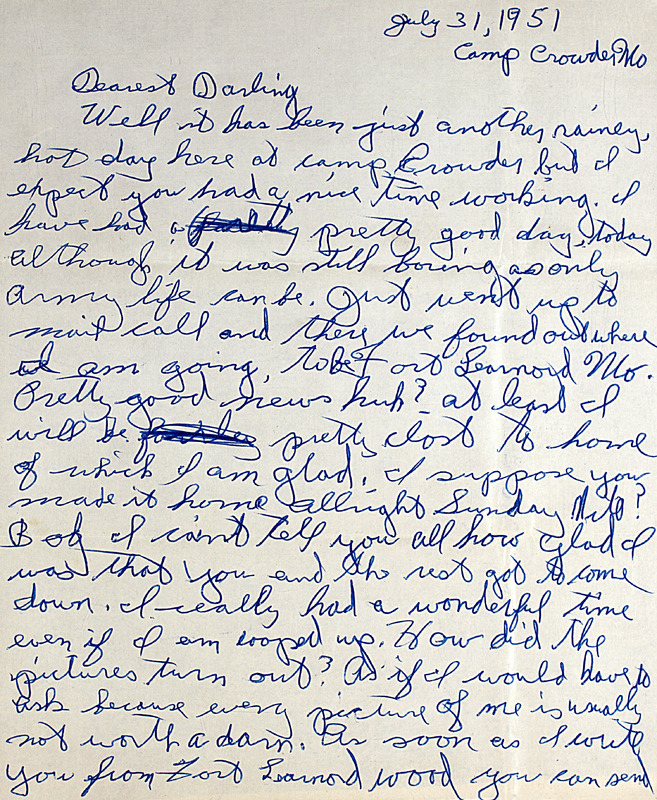 July 31, 1951
Camp Crowder Mo
Dearest Darling
Well it has been just another rainey,
hot day here at camp Crowder but I
expect you had a nice time working. I
have had a pretty good day, today
although it was still boring as only
Army life can be. Just went up to
mail call and there we found out where
I am going, to be Fort Leanord Mo.
Pretty good news huh? at least I
will be pretty clost to home
of which I am glad. I suppose you
made it home allright Sunday Nite?
Bob I can't tell you all how glad I
was that you and the rest got to come
down. I really had a wonderful time
even if I am cooped up. How did the
pictures turn out? As if I would have to
ask because every picture of me is usually
not worth a darn. As soon as I write
you from Fort Leanord wood you can send